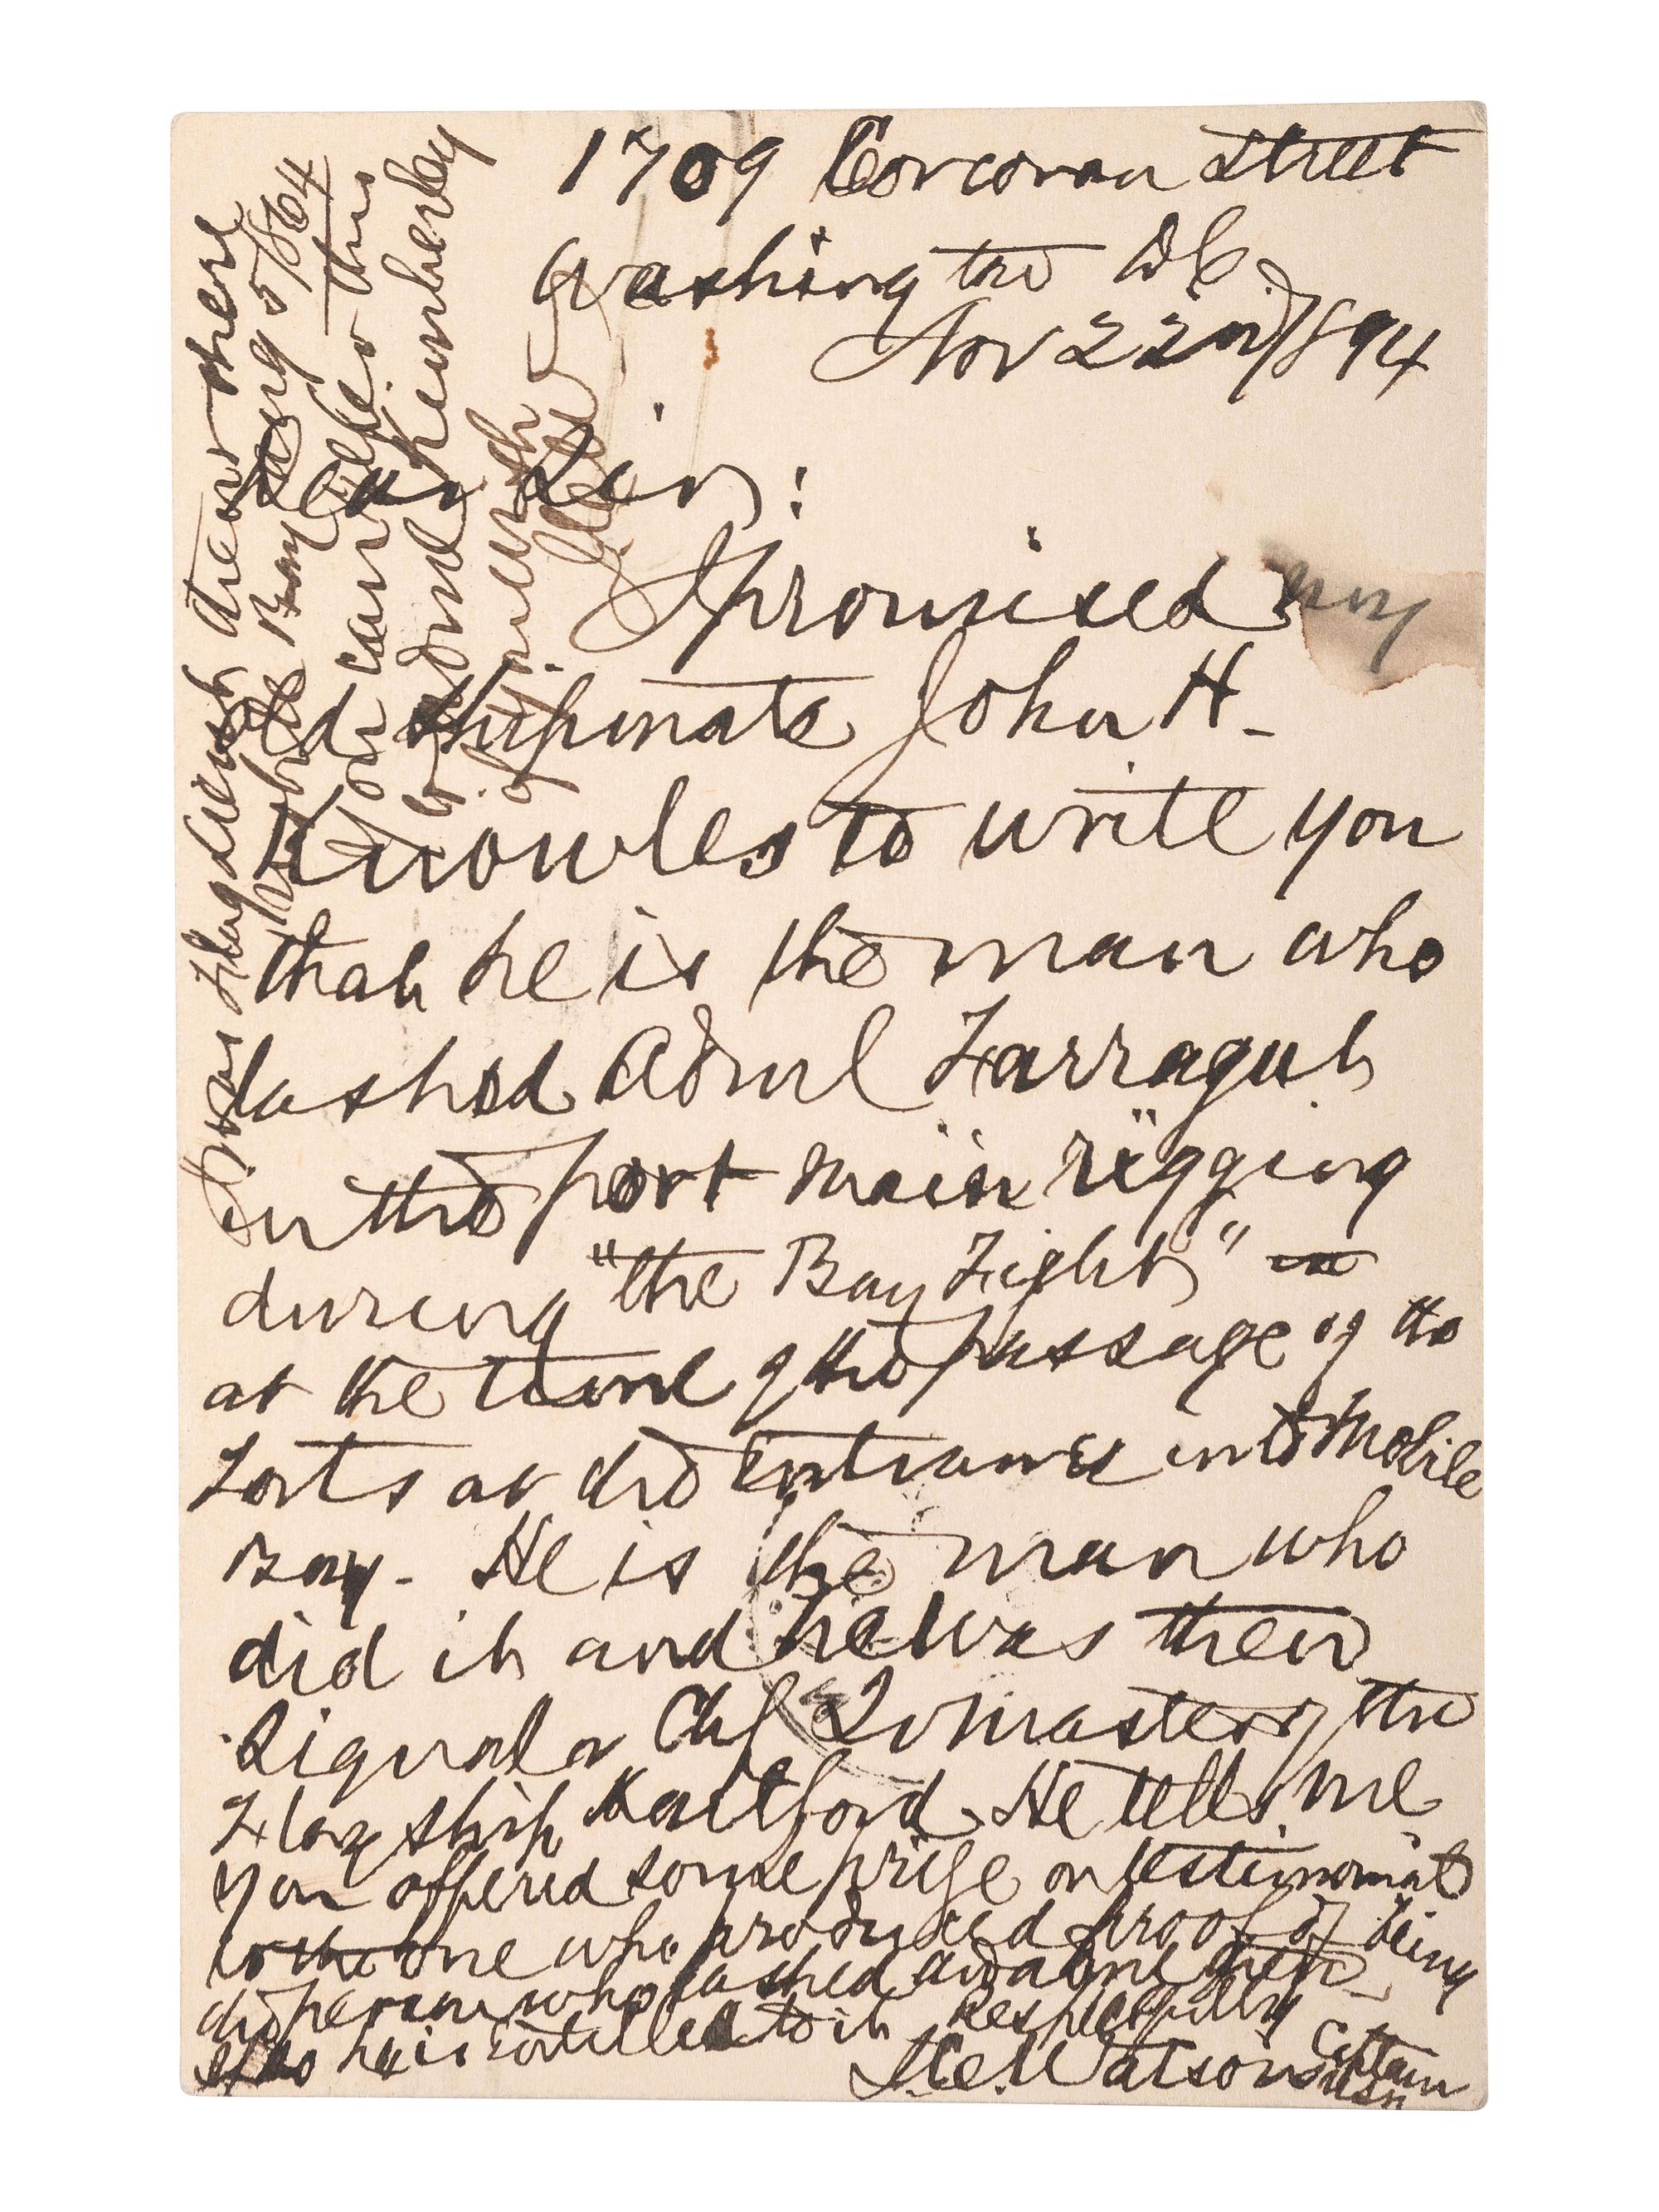 1709 Corcoran Street
Washington DC.
Nov 22nd/894
Dear Sir:
I promised my
old shipmate John H.
Knowles to write you
that he is the man who
lashed Adml Farragut
in the port main rigging
during "the Bay Fight"
at the time of the passage of the
Forts at the entrance into Mobile
Bay. He is the man who
did it and he was then
Signal or Chf Qrmaster of the
Flag ship Hartford. He tells me
you offered some prize or testimonial
to the one who produced proof of being
the person who lashed and
he is entitled to it Respectfully
J.C. Watson Captain
USN
I was Flag Lieut then & there
Mobile Bay Aug 5/864
You can this
to Adml
of